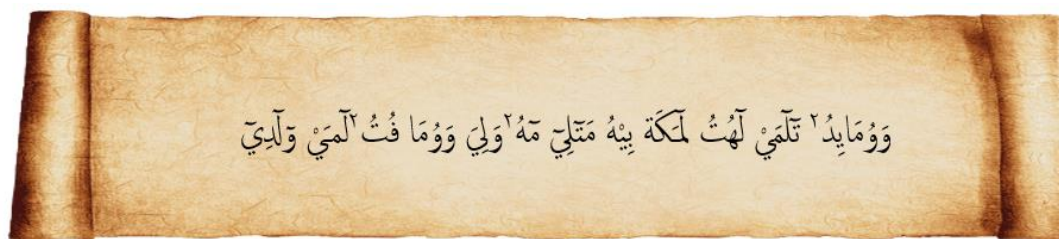 وَوُمَايِدُ٢ تَلَٓمَيْ لَٓهُتُ لَمَٓكَة بِيْهُ مَتَٓلِيٓ مَٓهُ٢ وَلِيَ وَوُمَا فُتُ٢ لَٓمَيْ وَٓلَٓدِيَٓ